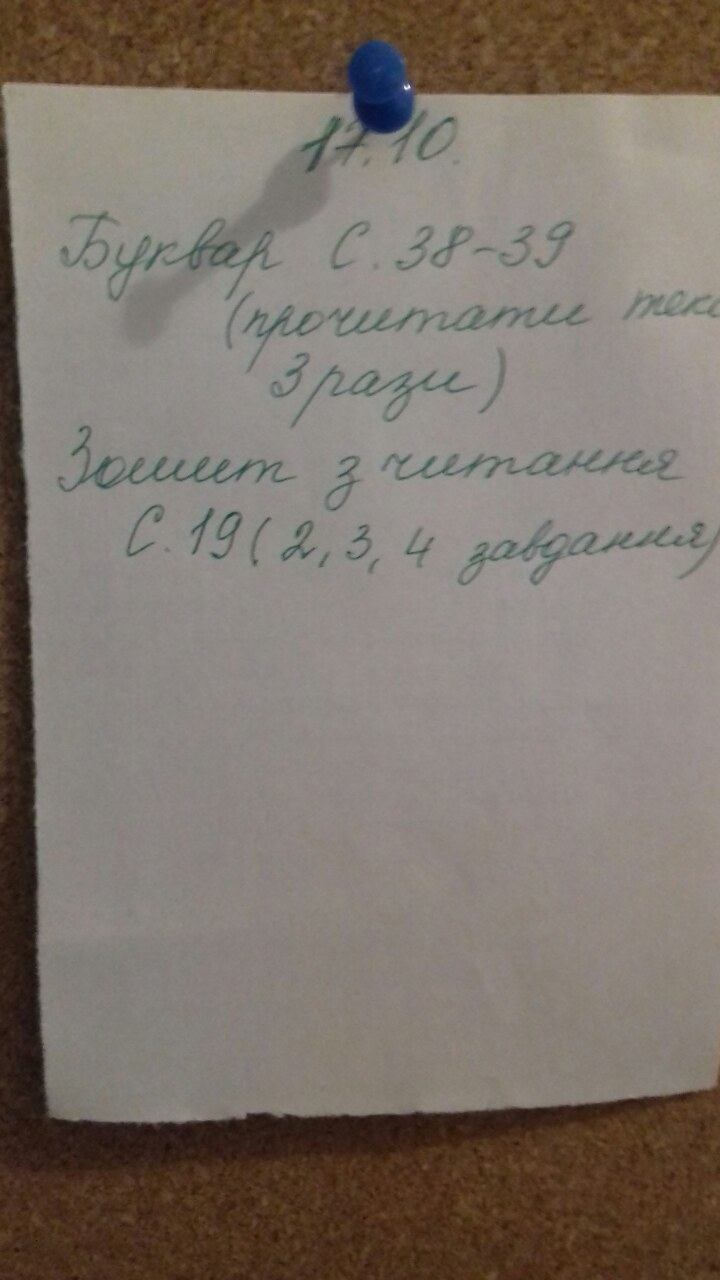 17.10.
Буквар С. 38-39
(прочитати
3 рази)
Зошит з читання
С. 19 (2, 3, 4 завдання)